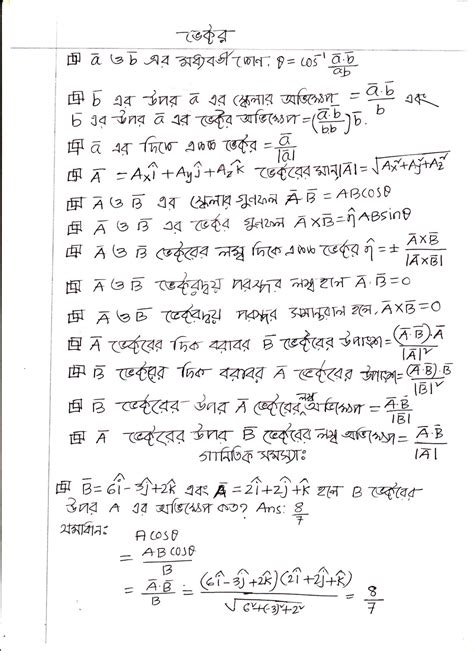 ভেক্টর
⊞ a̅ ও b̅ এর মধ্যবর্তী কোণ, θ = cos⁻¹ a̅·b̅/ab
⊞ b̅ এর উপর a̅ এর স্কেলার অভিক্ষেপ = a̅·b̅/b এবং
b̅ এর উপর a̅ এর ভেক্টর অভিক্ষেপ = (a̅·b̅/bb) b̅.
⊞ a̅ এর দিকে একক ভেক্টর = a̅/|a̅|
⊞ A̅ = Aₓî + Aᵧĵ + A_z k̂ ভেক্টরের মান, |A̅| = √(Aₓ²+Aᵧ²+A_z²)
⊞ A̅ ও B̅ এর স্কেলার গুণফল A̅·B̅ = ABcosθ
⊞ A̅ ও B̅ এর ভেক্টর গুণফল A̅×B̅ = η̂ ABsinθ
⊞ A̅ ও B̅ ভেক্টরের লম্ব দিকে একক ভেক্টর η̂ = ± A̅×B̅/|A̅×B̅|
⊞ A̅ ও B̅ ভেক্টরদ্বয় পরস্পর লম্ব হলে A̅·B̅ = 0
⊞ A̅ ও B̅ ভেক্টরদ্বয় পরস্পর সমান্তরাল হলে, A̅×B̅ = 0
⊞ A̅ ভেক্টরের দিক বরাবর B̅ ভেক্টরের উপাংশ = (A̅·B̅)·A̅/|A̅|²
⊞ B̅ ভেক্টরের দিক বরাবর A̅ ভেক্টরের উপাংশ = (A̅·B̅)·B̅/|B̅|²
⊞ B̅ ভেক্টরের উপর A̅ ভেক্টরের লম্ব অভিক্ষেপ = A̅·B̅/|B̅|
⊞ A̅ ভেক্টরের উপর B̅ ভেক্টরের লম্ব অভিক্ষেপ = A̅·B̅/|A̅|
গাণিতিক সমস্যাঃ
⊞ B̅ = 6î - 3ĵ + 2k̂ এবং A̅ = 2î + 2ĵ + k̂ হলে B ভেক্টরের
উপর A এর অভিক্ষেপ কত? Ans: 8/7
সমাধান: A cosθ
= AB cosθ/B
= A̅·B̅/B = (6î - 3ĵ + 2k̂)(2î + 2ĵ + k̂)/√(6²+(-3)²+2²) = 8/7